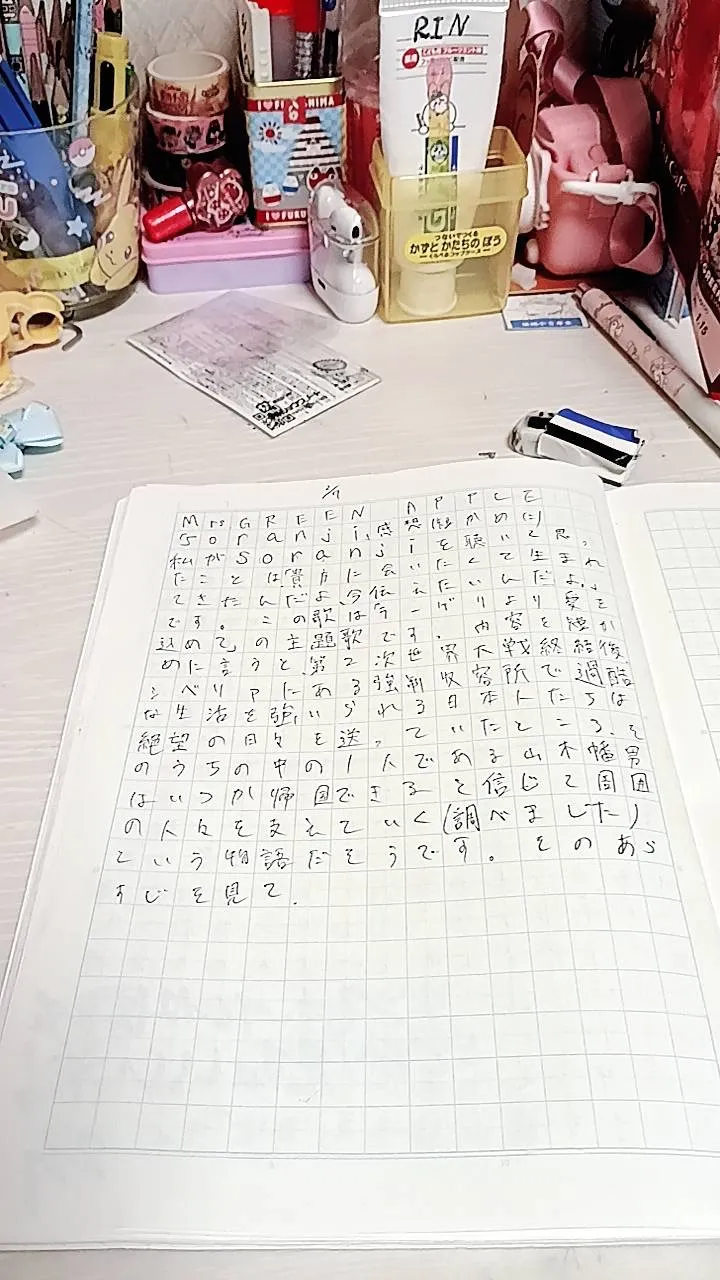 RIN
こどもフルーツミント味
I♥FU
HIMA
I♥FUKU
つないでつくる
かずとかたちのぼう
くらべるコップケース
2/7
Mrs GREEN APPLE
Soranji、感想(短かめに)
私がSoranjiを聴いて思っ
たことは「貴方に会いたくて生まれ
てきたんだよ、今伝えたいんだよ。」
です。この歌は「ラーゲリより愛を
込めて」の主題歌です。内容を短か
めに言うと、第2次世界大戦終結後
シベリアにある強制収容所で過酷
な生活を強いられる日本人たちは
絶望の日々を送っていたところ、そ
のうちの中の1人である山本幡男
はいつか帰国できると信じて周囲
の人々を支えていく(調べました)
という物語だそうです。そのあら
すじを見て、